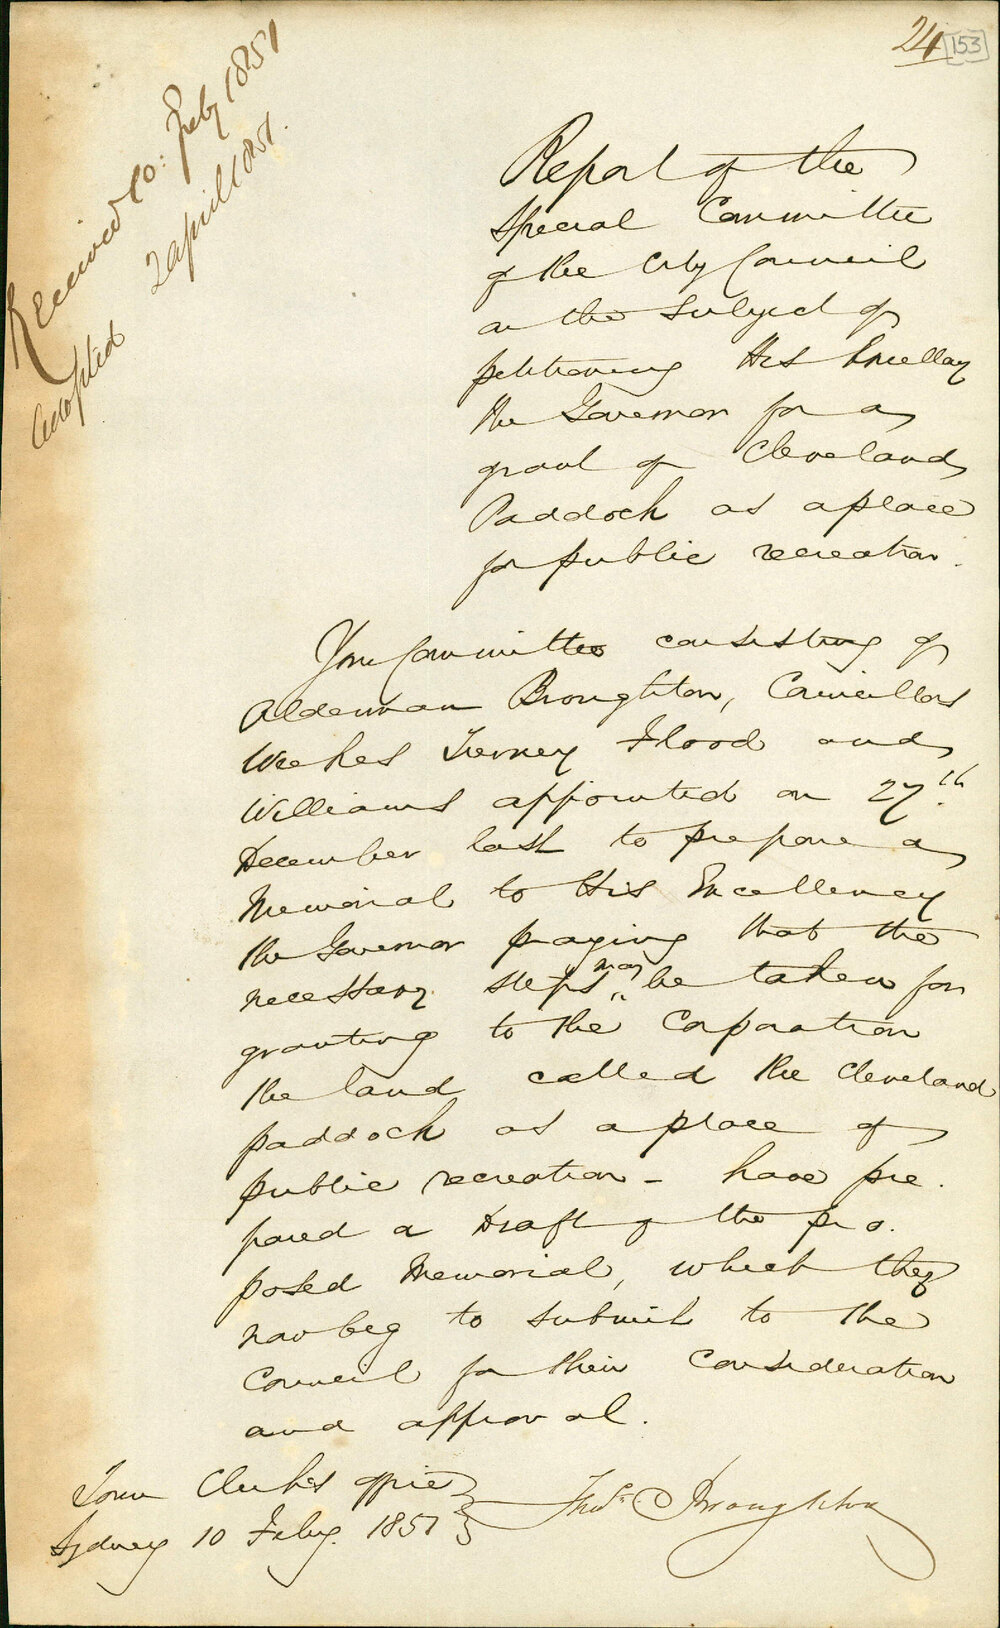 24
153
Received 10: Feby 1851
Adopted 2 April 1851.
Report of the
Special Committee
of the City Council
on the Subject of
petitioning His Excellency
the Governor for a
grant of Cleveland
Paddock as a place
for public recreation.
Your Committee consisting of
Alderman Broughton, Councillors
Weekes Tierney Flood and
Williams appointed on 27th
December last to prepare a
Memorial to His Excellency
the Governor praying that the
necessary steps may be taken for
granting to the Corporation
the land called the Cleveland
paddock as a place of
public recreation - have pre.
pared a Draft of the pro.
posed Memorial, which they
now beg to submit to the
Council for their Consideration
and approval.
Town Clerk's Office
Sydney 10 Feby. 1851
Thos. Broughton